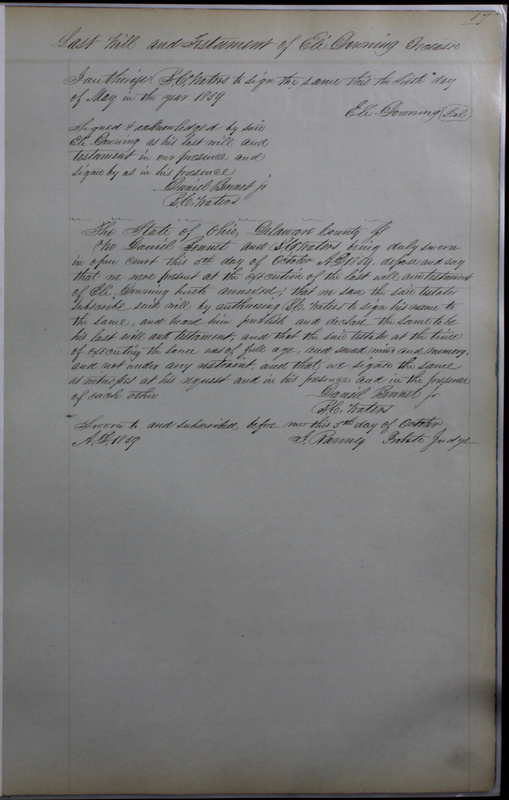 17
Last Will and Testament of Eli Downing Deceased
I authorise P.C. Waters to sign the same this the sixth day
of May in the year 1859
Eli Downing (Seal)
Signed & acknowledged by said
Eli Downing as his last will and
testament in our presence and
signed by us in his presence
Daniel Bennet Jr
P.C. Waters
The State of Ohio, Delaware County SS
We Daniel Bennet and P.C. Waters being duly sworn
in open court this 5th day of October A.D. 1859, depose and say
that we were present at the execution of the last will and testament
of Eli Downing hereto annexed; that we saw the said testator
subscribe said will by authorising P.C. Waters to sign his name to
the same, and heard him publish and declare the same to be
his last will and testament, and that the said testator at the time
of executing the same was of full age, and sound mind and memory,
and not under any restraint, and that we signed the same
as witnesses at his request and in his presence and in the presence
of each other
Daniel Bennet Jr
P.C. Waters
Sworn to and subscribed before me this 5th day of October
A.D. 1859
Ranney Probate Judge